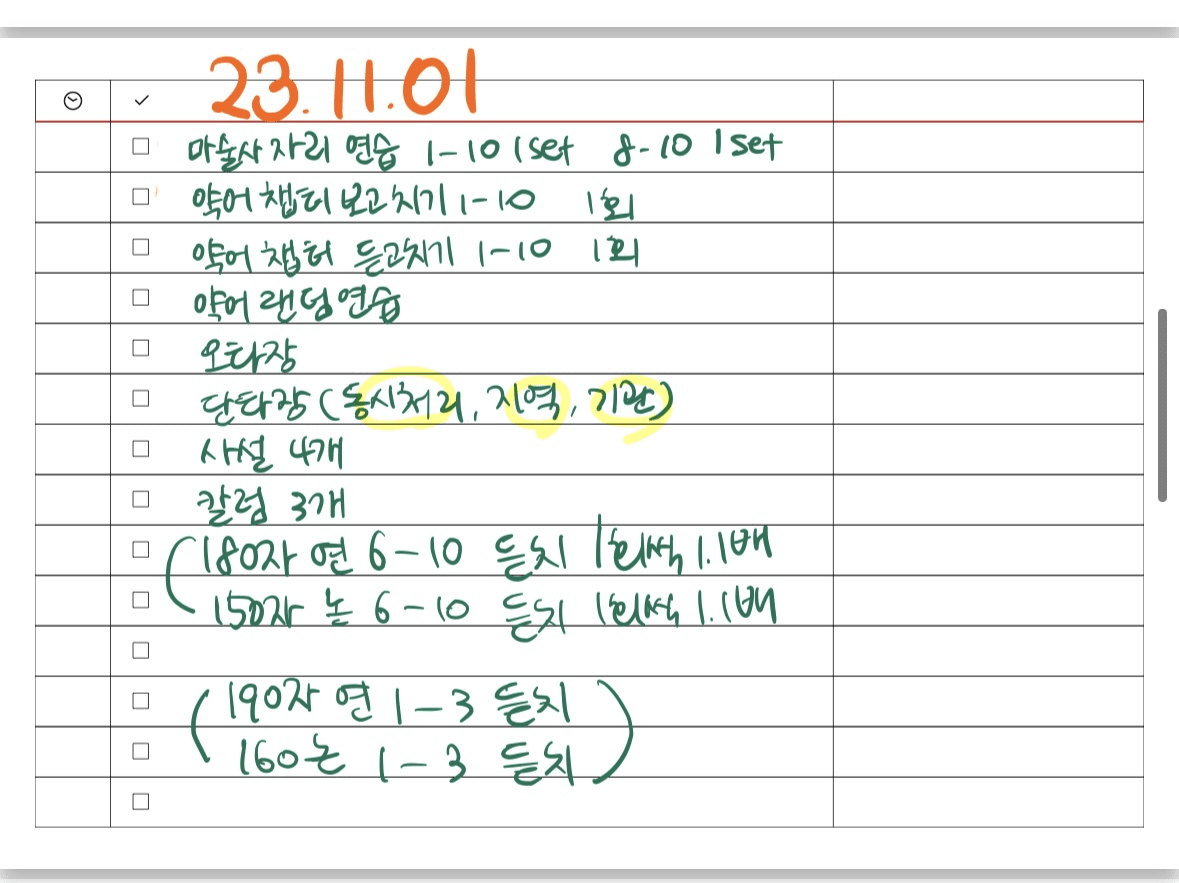 23.11.01
마술사 자리 연습 1-10 1set 8-10 1set
약어 챕터 보고치기 1-10 1회
약어 챕터 듣고치기 1-10 1회
약어 랜덤연습
오타장
단타장(동시처리, 지역, 기관)
사설 4개
칼럼 3개
(180자 연 6-10 듣치 1회씩 1.1배
150자 논 6-10 듣치 1회씩 1.1배
(190자 연 1-3 듣치)
160논 1-3 듣치